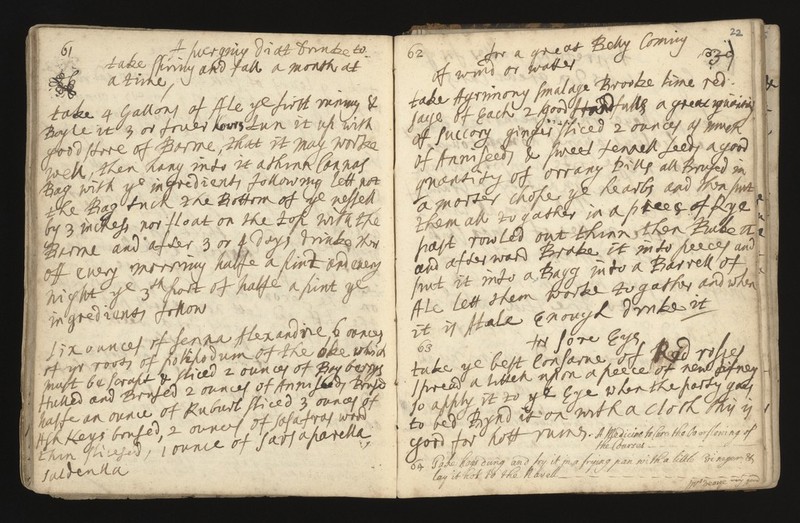 61
A purging diat drinke to
take spring and fall a month at
a time
take 4 Gallons of Ale ye first runing &
Boyle it 3 or fouer howrs tun it up with
good store of Barme, that it may worke
well, then hang into it a thinn Canvas
Bag with ye ingredients following lett not
the Bag tuch the Bottom of ye vessell
by 3 inchess nor float on the top with the
Barme and after 3 or 4 days drinke
off every morning halfe a pint and every
night ye 3th part of halfe a pint ye
ingredients follow
six ounces of senna Alexandire 6 ounces
of ye roots of polipodum of the oke which
must be scrapt & sliced 2 ounces of Bay berys
Husked and Brused 2 ounces of Anniseeds Brused
halfe an ounce of Rubarb sliced 3 ounces of
Ash keys brused, 2 ounces of sasafras wood
thin sliced, 1 ounce of sarsaparella
22
62
for a great Belly Coming
of wind or watter
take Agrimony smalage Brooke lime red
sage of Each 2 good handfulls a great
of Succory ginger sliced 2 ounces as much
of Anniseeds & sweet fennell seeds a good
quantity of orrang pills all Brused in
a morter chope ye hearbs and then put
them all to gather in a peece of Rye
past rowled out thinn then Bake it
and after ward Brake it into peeces and
put it into a Bagg into a Barrell of
Ale lett them worke to gather and when
it is stale Enough drinke it
63
for sore Eys
take ye best Conserve of Red roses
spread a litle upon a peece of new
so apply it to ye Eye when the party goes
to bed Bynd it on with a cloth this is
good for hott rumes.
A Medicine to turn the
the
64 Take hors dung and fry it in a frying pan with a little Vineger, &
lay it hot to the Navell